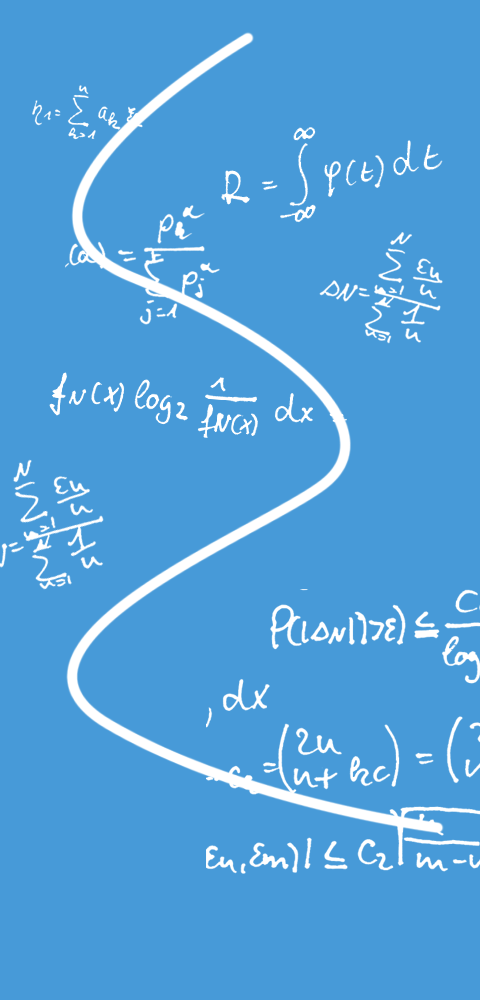 η1 = ∑ n k=1 ak ξk
R = ∫ ∞ -∞ φ(t) dt
(α) = pk^α / ∑ j=1 pj^α
ΔN = ∑ N n=1 εn/n / ∑ N n=1 1/n
fN(x) log2 1/fN(x) dx
= ∑ N n=1 εn/n / ∑ N n=1 1/n
P(|ΔN|>ε) ≤ C / log
, dx
= (2n n+kc) = (
εn, εm)| ≤ C2 √ m-n